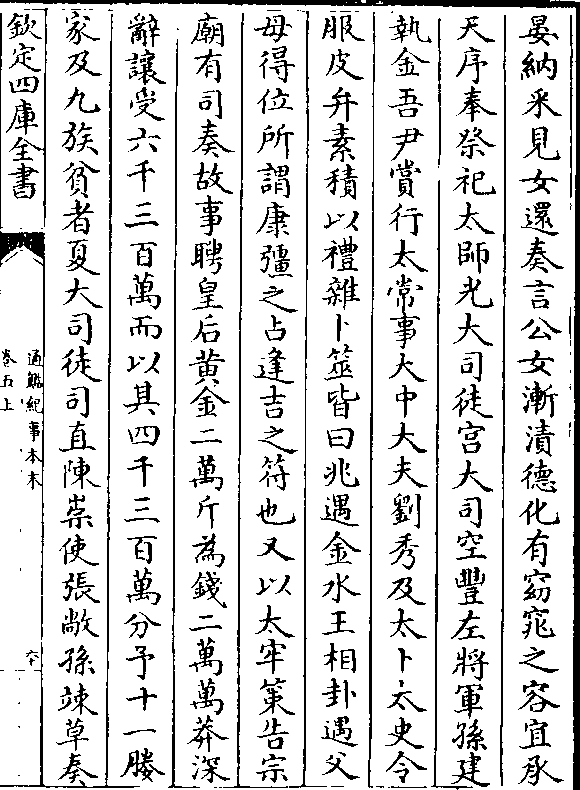 晏納采見女還奏言公女漸漬德化有窈窕之容宜承
天序奉祭祀太師光大司徒宫大司空豐左將軍孫建
執金吾尹賞行太常事大中大夫劉秀及太卜太史令
服皮弁素積以禮雜卜筮皆曰兆遇金水王相卦遇父
母得位所謂康彊之占逢吉之符也又以太牢策告宗
廟有司奏故事聘皇后黄金二萬斤為錢二萬萬莽深
辭讓受六千三百萬而以其四千三百萬分予十一媵
家及九族貧者夏大司徒司直陳崇使張敞孫竦草奏
欽定四庫全書
通鑑紀事本末
卷五上
六